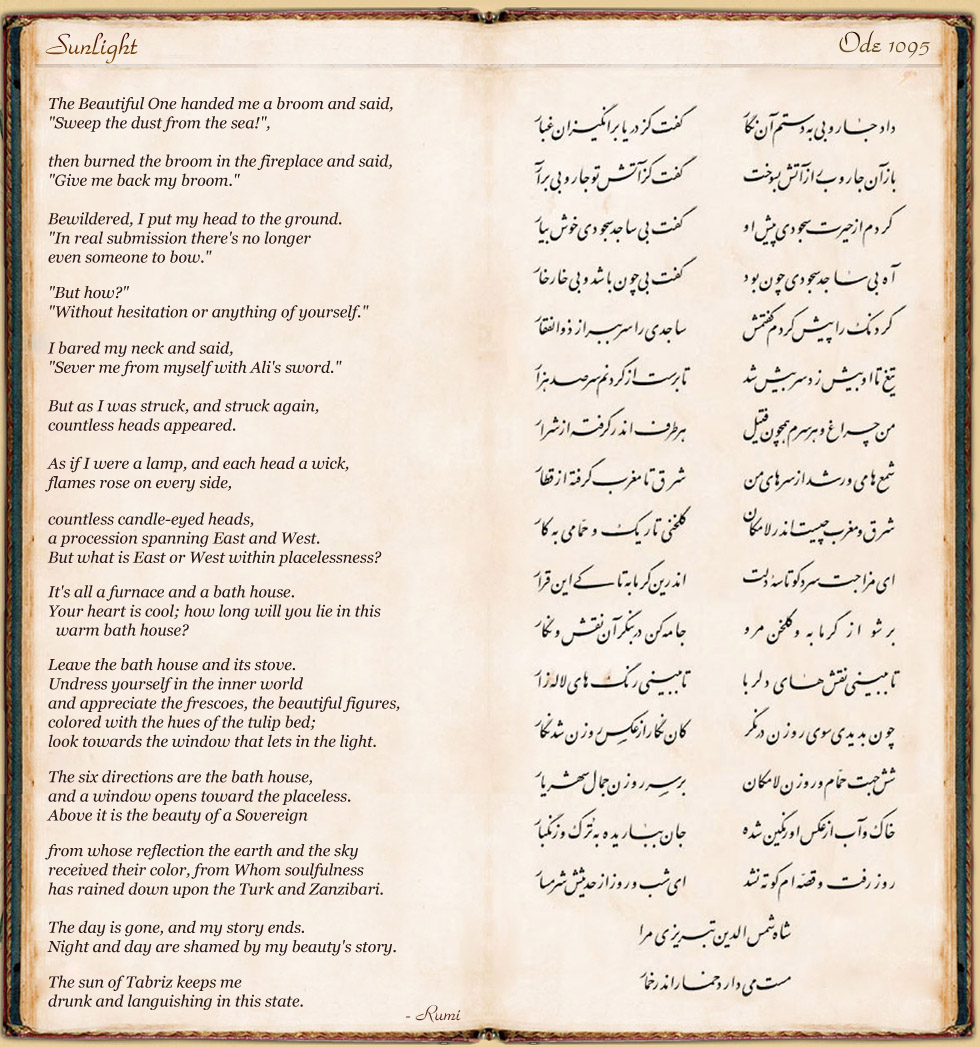 Sunlight
Ode 1095
The Beautiful One handed me a broom and said,
"Sweep the dust from the sea!",
then burned the broom in the fireplace and said,
"Give me back my broom."
Bewildered, I put my head to the ground.
"In real submission there's no longer
even someone to bow."
"But how?"
"Without hesitation or anything of yourself."
I bared my neck and said,
"Sever me from myself with Ali's sword."
But as I was struck, and struck again,
countless heads appeared.
As if I were a lamp, and each head a wick,
flames rose on every side,
countless candle-eyed heads,
a procession spanning East and West.
But what is East or West within placelessness?
It's all a furnace and a bath house.
Your heart is cool; how long will you lie in this
warm bath house?
Leave the bath house and its stove.
Undress yourself in the inner world
and appreciate the frescoes, the beautiful figures,
colored with the hues of the tulip bed;
look towards the window that lets in the light.
The six directions are the bath house,
and a window opens toward the placeless.
Above it is the beauty of a Sovereign
from whose reflection the earth and the sky
received their color, from Whom soulfulness
has rained down upon the Turk and Zanzibari.
The day is gone, and my story ends.
Night and day are shamed by my beauty's story.
The sun of Tabriz keeps me
drunk and languishing in this state.
- Rumi
داد جارویی به دستم آن نگار گفت کز دریا برانگیزان غبار
باز آن جاروب از آتش بسوخت گفت کز آتش تو جارویی برآر
کردم از حیرت سجودی پیش او گفت بی ساجد سجودی خوش بیار
آه بی ساجد سجودی چون بود گفت بی چون باشد و بی خارخار
گردنک را پیش کردم گفتمش ساجدی را سر ببر از ذوالفقار
تیغ تا او بیش زد سر بیش شد تا برست از گردنم سر صد هزار
من چراغ و هر سرم همچون فتیل هر طرف اندر گرفته از شرار
شمع ها می ورشد از سرهای من شرق تا مغرب گرفته از قطار
شرق و مغرب چیست اندر لامکان گلخنی تاریک و حمّامی به کار
ای مزاجت سرد کو تاسهٔ دلت اندرین گرمابه تا کے این قرار
برشو از گرمابه و گلخن مرو جامه کن دربنگر آن نقش و نگار
تا ببینی نقش های دلربا تا ببینی رنگ های لاله زار
چون بدیدی سوی روزن درنگر کان نگار از عکس روزن شد نگار
شش جهت حمّام و روزن لامکان بر سر روزن جمال شهریار
خاک و آب از عکس او رنگین شده جان بباریده به ترک و زنگبار
روز رفت و قصّه ام کوته نشد ای شب و روز از حدیثش شرمسار
شاه شمس الدین تبریزی مرا
مست می دارد خمار اندر خمار